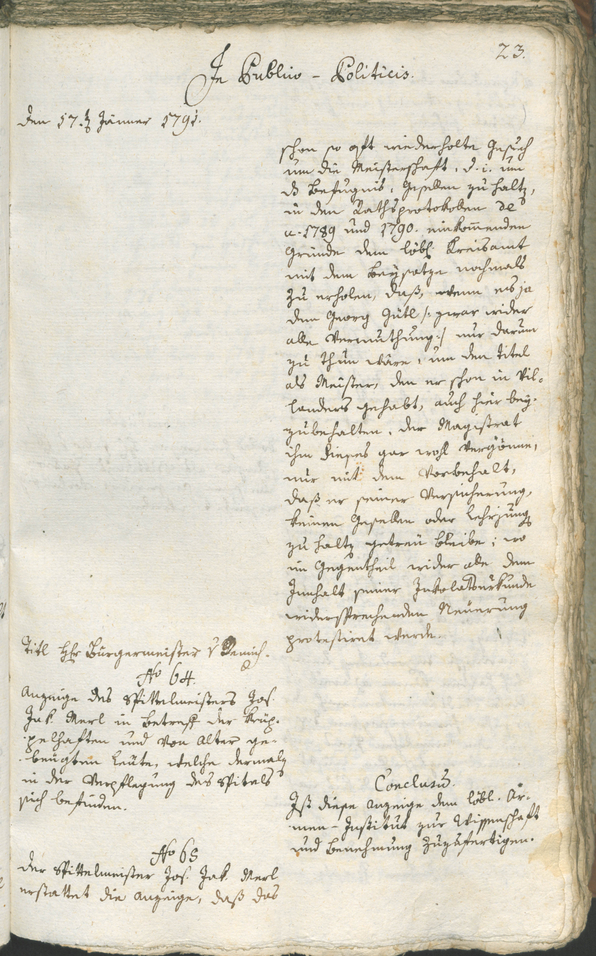 23.
In Publico-Politicis.
den 17.t Jänner 1791.
schon so oft wiederholte Gesuch
um die Meisterschaft, d. i. um
ds Befugnis, Gesellen zu haltn,
in den Rathsprotokollen de
a. 1789 und 1790. einkommenden
Gründe dem löbl. Kreisamt
mit dem Beysatze nochmals
zu erholen, daß, wenn es ja
dem Georg Gütl /: zwar wider
alle Vermuthung :/ nur darum
zu thun wäre, um den Titel
als Meister, den er schon in Vil-
landers gehabt, auch hier bey-
zubehalten, der Magistrat
ihm dieses gar wol vergönne,
nur mit dem Vorbehalt,
daß er seiner Versicherung,
keinen Gesellen oder Lehrjung
zu haltn getreu bleibe; wo
im Gegentheil wider alle dem
Innhalt seiner Inkolatsurkunde
widersprechenden Neuerung
protestiret werde.
Titl Hr Bürgermeister v
No 64
Anzeige des Spittelmeisters Jos.
Jak. Merl in Betreff der krüp-
pelhaften und von Alter ge-
beugten Leute, welche dermaln
in der Verpflegung des Spitals
sich befinden.
Conclusum.
Ist diese Anzeige dem löbl. Ar-
men-Institut zur Wissenschaft
und Benehmung zuzufertigen.
No 65
Der Spittelmeister Jos. Jak. Merl
erstattet die Anzeige, daß das